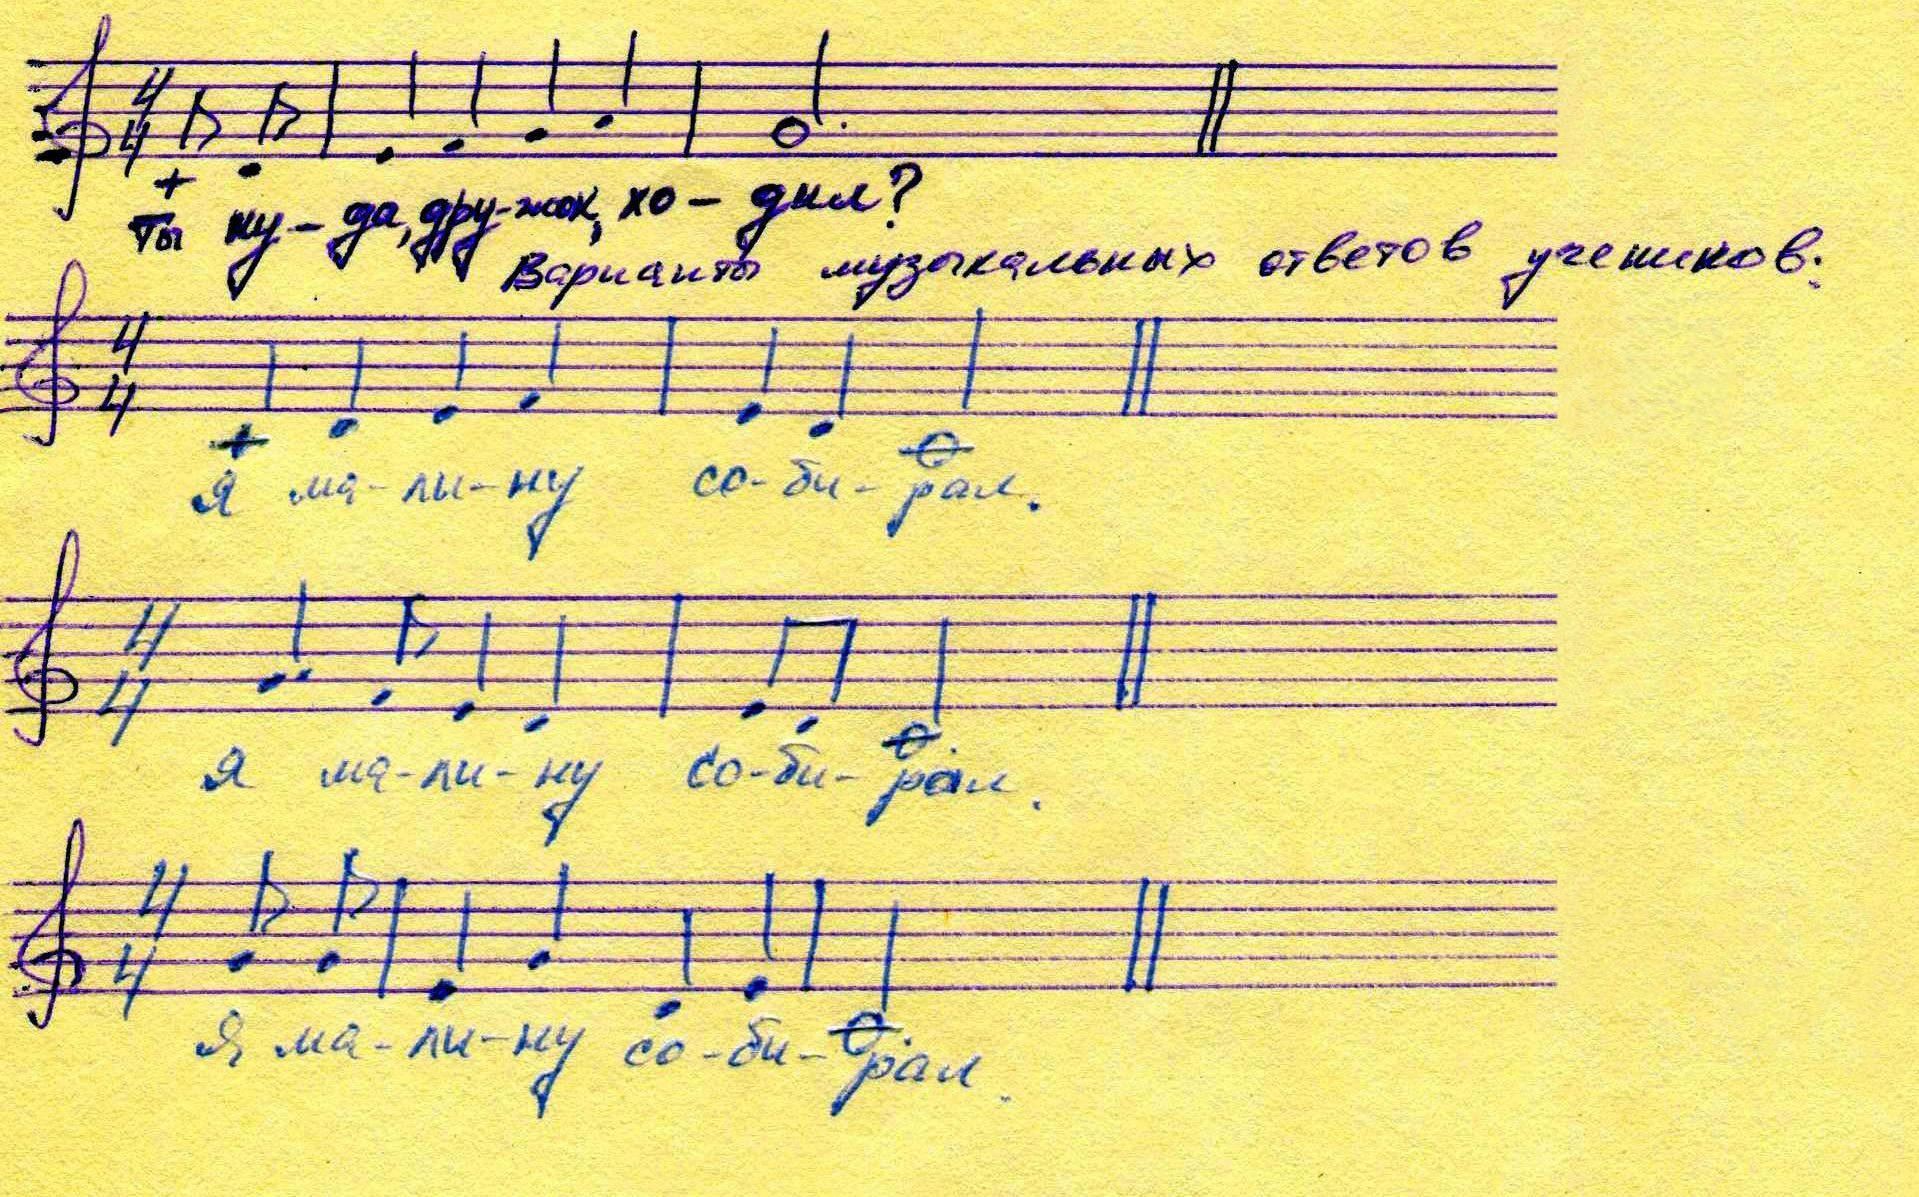 4/4
Ты ку-да, дру-жок, хо-дил?
Варианты музыкальных ответов учеников:
4/4
Я ма-ли-ну со-би-рал.
4/4
Я ма-ли-ну со-би-рал.
4/4
Я ма-ли-ну со-би-рал.